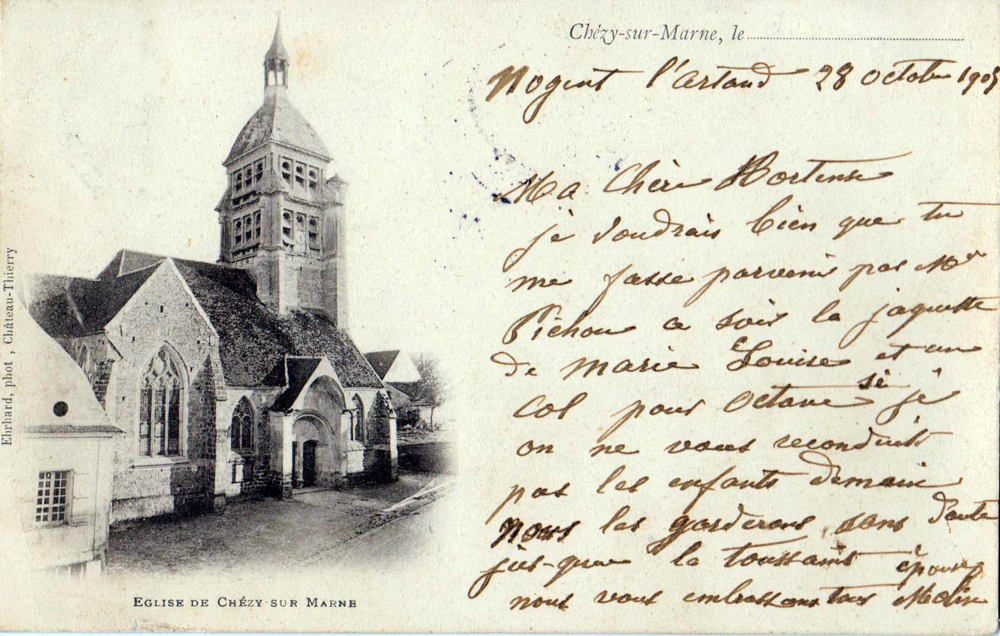 Chézy-sur-Marne, le
Nogent l'artaud 28 octobre 190
Ma Chère Hortense
je voudrais bien que tu
me fasse parvenir par Mr
Pichon ce soir la jaquette
de Marie Louise et un
col pour Octave si
on ne vous reconduit
pas les enfants demain
nous les garderons sans doute
jus-que la toussaint
nous vous embrassons tous
Ehrhard, phot , Château-Thierry
EGLISE DE CHÉZY SUR MARNE